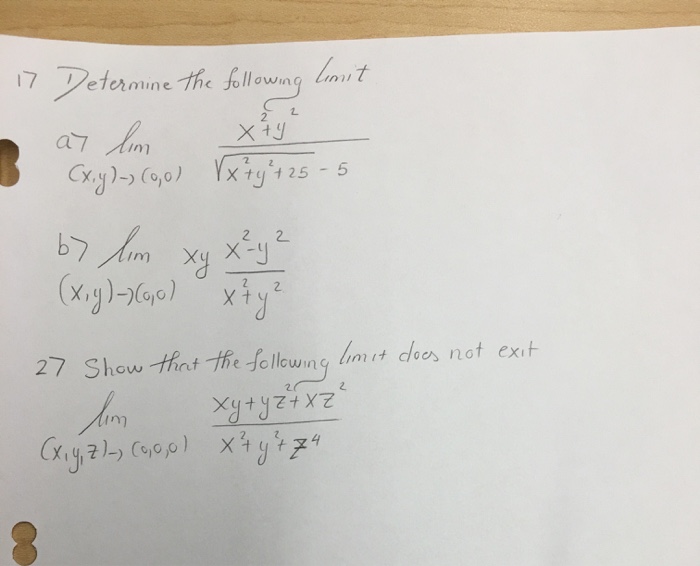 17 Determine the following limit
a7 lim (x,y)->(0,0) x²+y² / √x²+y²+25 - 5
b7 lim (x,y)->(0,0) xy x²-y² / x²+y²
27 Show that the following limit does not exit
lim (x,y,z)->(0,0,0) xy+yz²+xz² / x²+y²+z⁴